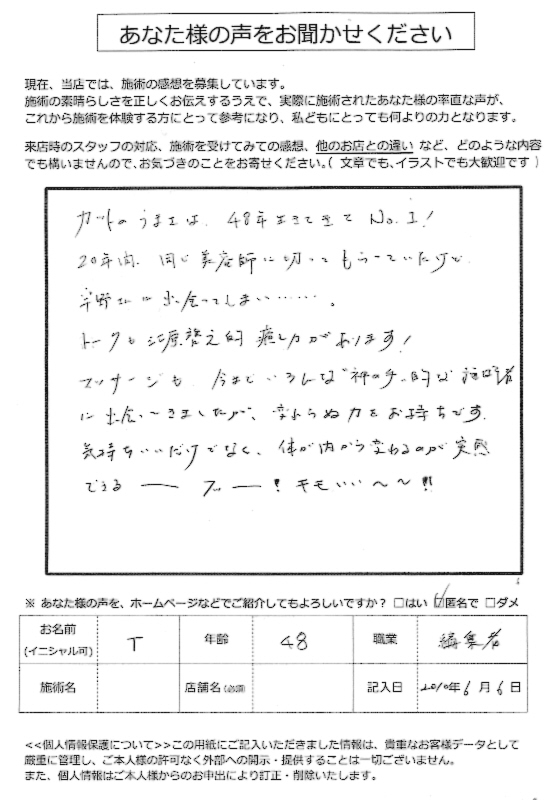 あなた様の声をお聞かせください
現在、当店では、施術の感想を募集しています。
施術の素晴らしさを正しくお伝えするうえで、実際に施術されたあなた様の率直な声が、
これから施術を体験する方にとって参考になり、私どもにとっても何よりの力となります。
来店時のスタッフの対応、施術を受けてみての感想、他のお店との違い など、どのような内容
でも構いませんので、お気づきのことをお寄せください。( 文章でも、イラストでも大歓迎です )
カットのうまさは、48年生きてきて No.1!
20年間、同じ美容師に切ってもらっていたけど、
宇野さんに出会ってしまい………。
トークも江原啓之的 癒し力があります!
マッサージも、今までいろんな"神の手"的な
に出会ってきましたが、変わらぬ力をお持ちです。
気持ちいいだけでなく、体が内から変わるのが実感
できる ― フー ― ! キモいい〜〜!!
※ あなた様の声を、ホームページなどでご紹介してもよろしいですか? □はい ☑匿名で □ダメ
お名前 (イニシャル可) T 年齢 48 職業 編集者
施術名 店舗名(必須) 記入日 2010年6月6日
<<個人情報保護について>>この用紙にご記入いただきました情報は、貴重なお客様データとして
厳重に管理し、ご本人様の許可なく外部への開示・提供することは一切ございません。
また、個人情報はご本人様からのお申出により訂正・削除いたします。